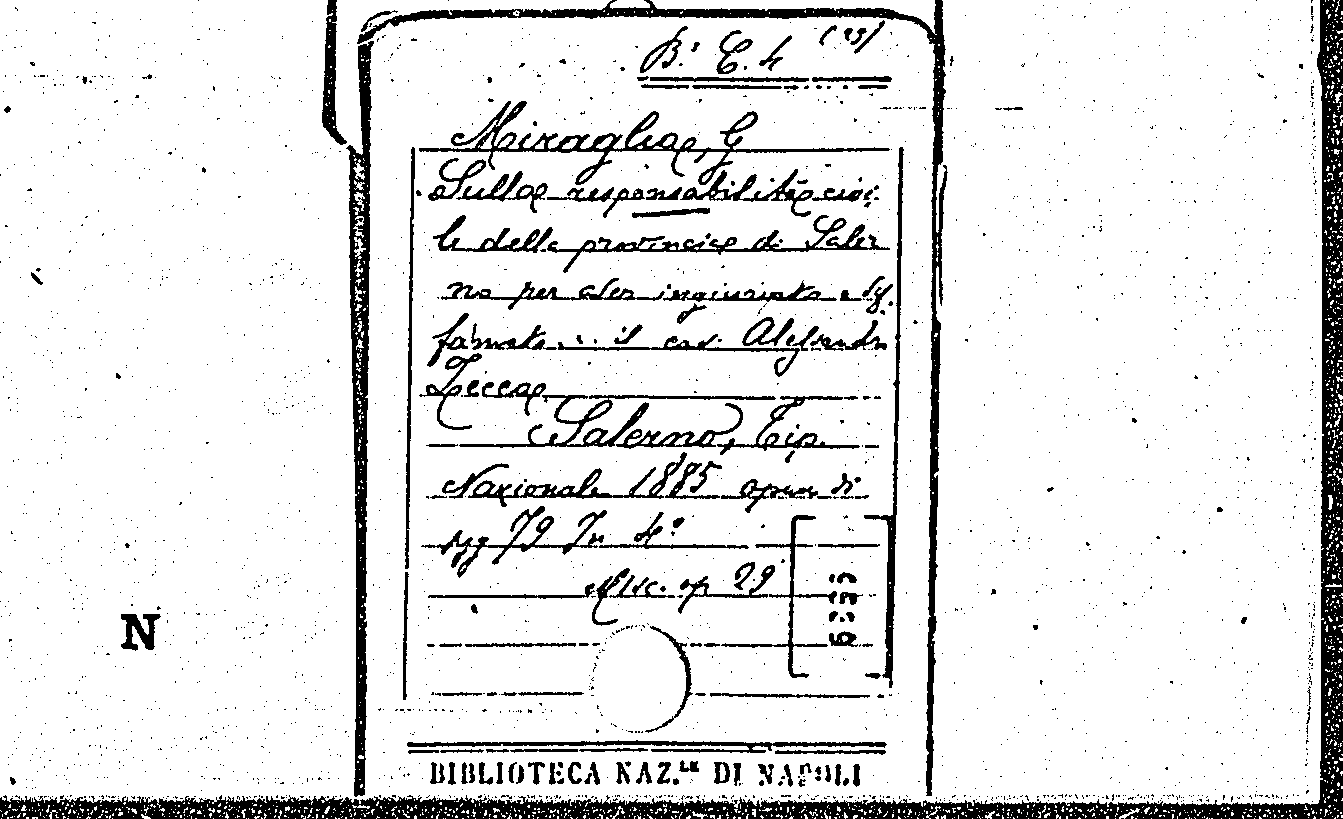 B.ª C. 4 (29)
Miraglia, G
Sulla responsabilità civi
le della provincia di Saler
no per aver ingiuriato e dif
famato ... il cav. Alessandro
Zecca
Salerno, Tip.
Nazionale 1885 opusc di
pag 79 In 4º
Misc. op 29
N
BIBLIOTECA NAZ.LE DI NAPOLI